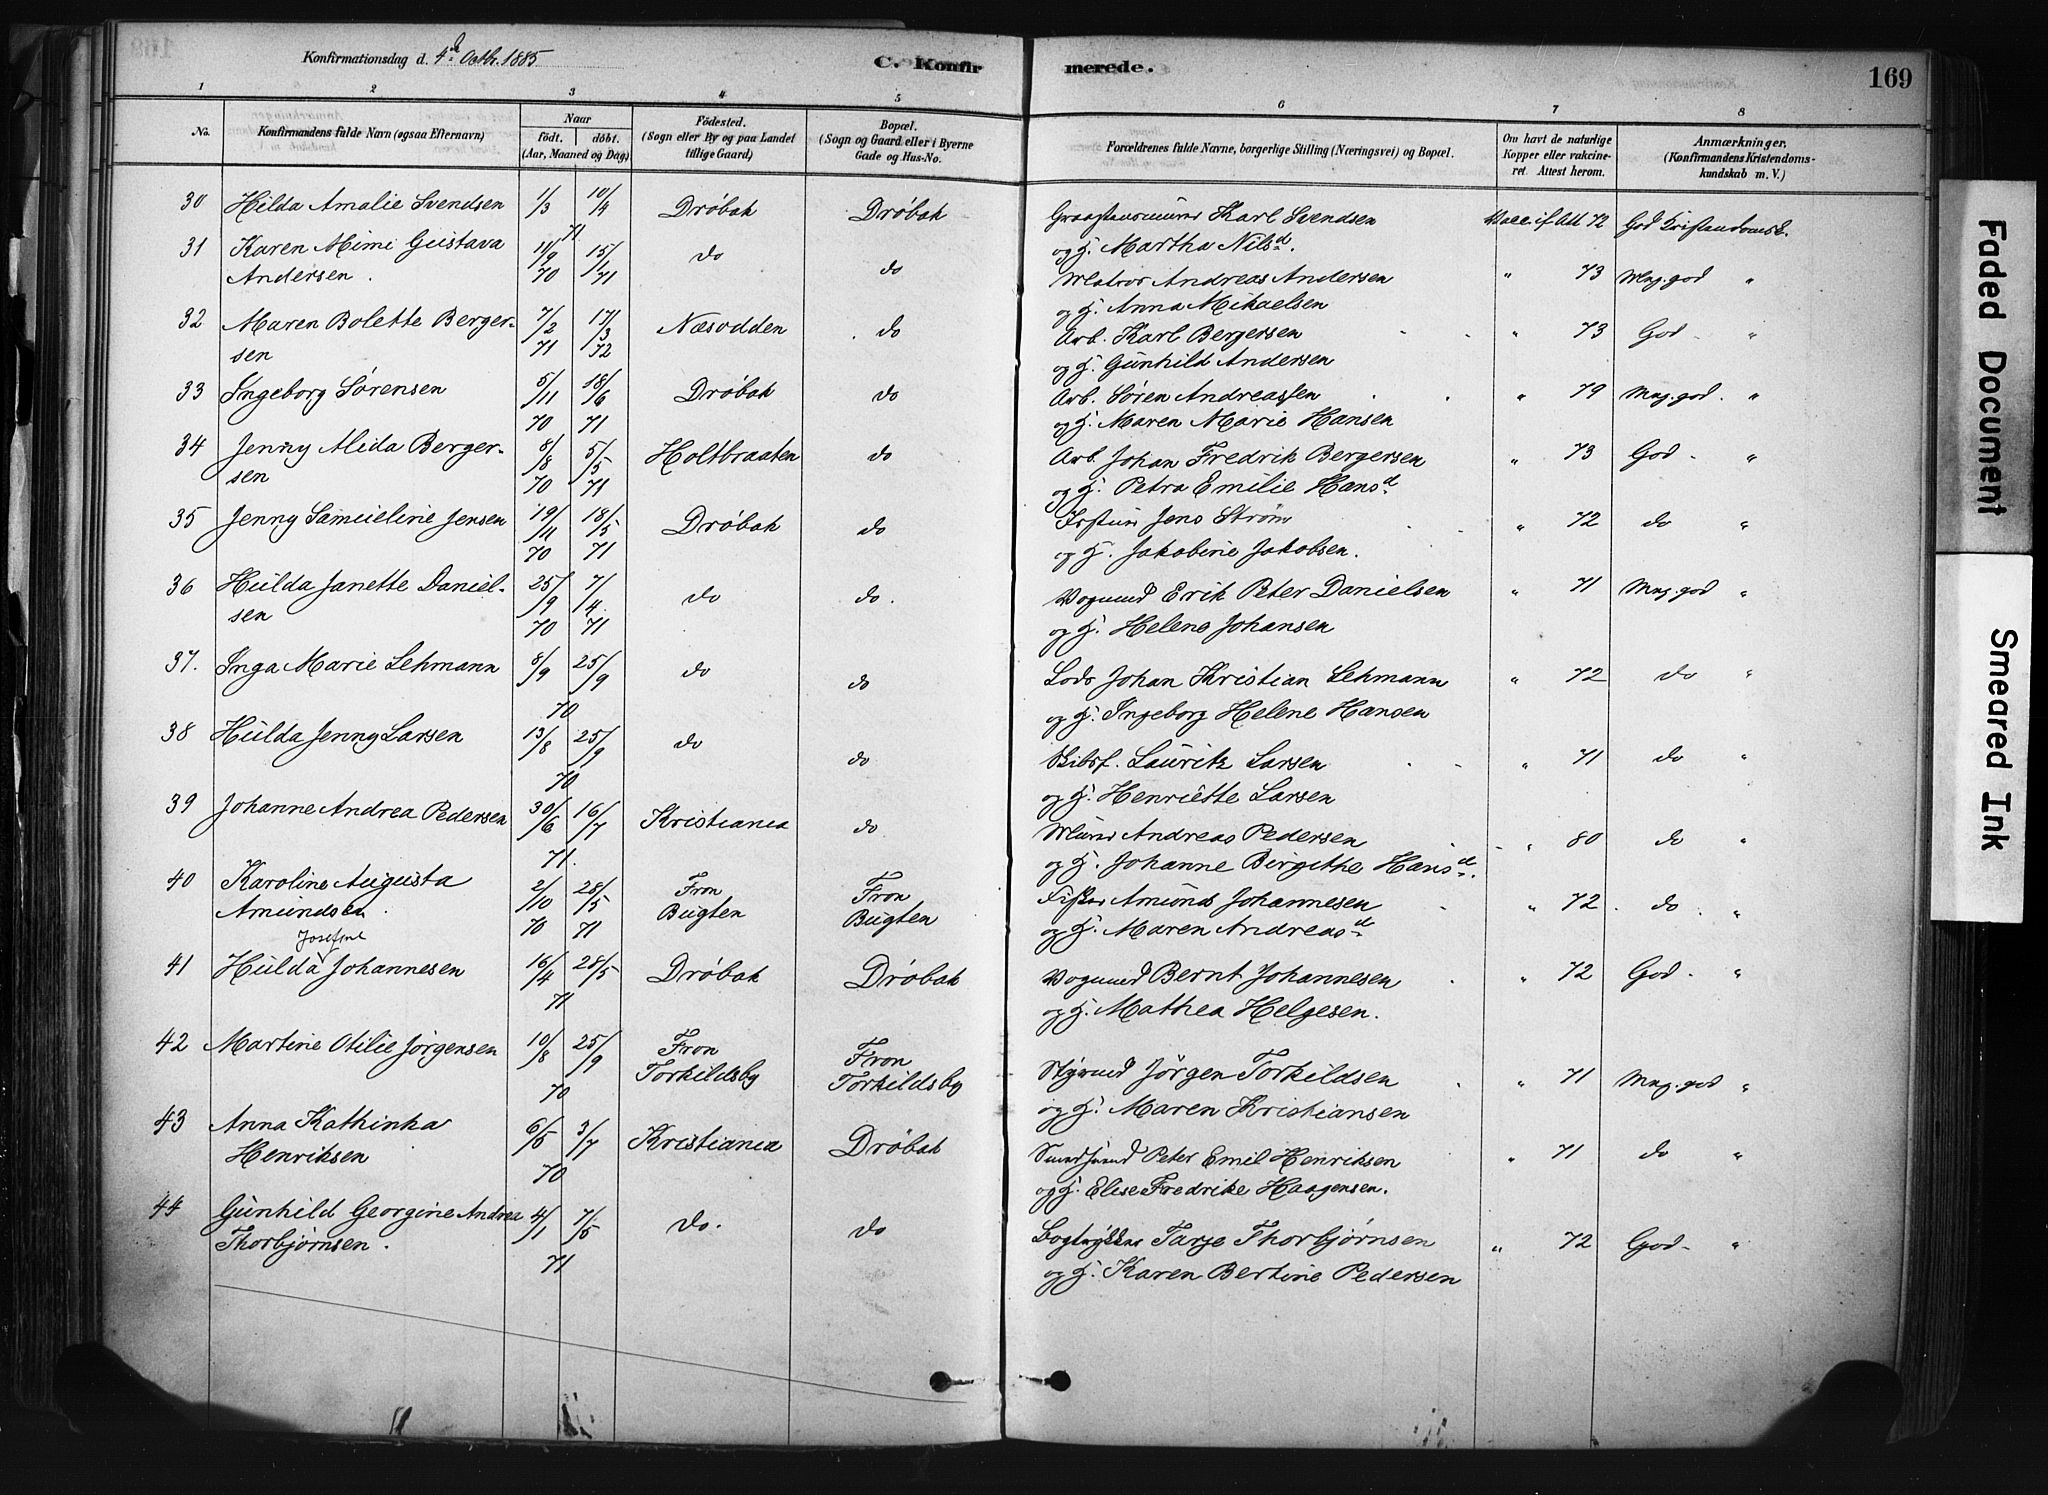 Konfirmationsdag d. 4de Octbr. 1885
C. Konfirmerede.
169
1 2 3 4 5 6 7 8
No.
Konfirmandens fulde Navn (ogsaa Efternavn)
Naar
født. døbt.
(Aar, Maaned og Dag)
Fødested.
(Sogn eller By og paa Landet
tillige Gaard)
Bopæl.
(Sogn og Gaard eller i Byerne
Gade og Hus-No.
Forældrenes fulde Navne, borgerlige Stilling (Næringsvei) og Bopæl.
Om havt de naturlige
Kopper eller vakcine-
ret. Attest herom.
Anmærkninger.
(Konfirmandens Kristendoms-
kundskab m. V.)
30 Hilda Amalie Svendsen 1/3 10/4 Drøbak Drøbak Karl Svendsen 72 God Kristendomsk.
71 og H. Martha Nilsd.
31 Karen Mimi Gustava 11/9 15/1 do do Matros Andreas Andersen " 73 Mug. god "
Andersen. 70 71 og H. Anna Mikaelsen
32 Maren Bolette Berger- 7/2 17/3 Næsodden do Arb. Karl Bergersen " 73 God - "
sen 71 72 og H. Gunhild Andersen
33 Ingeborg Sørensen 5/11 18/6 Drøbak do Arb. Søren Andreassen " 79 Mug. god. "
70 71 og H. Maren Marie Hansen
34 Jenny Alida Berger- 8/8 5/5 Holtbraaten do Arb. Johan Fredrik Bergersen " 73 God - "
sen 70 71 og H. Petra Emilie Hansd.
35 Jenny Samueline Jensen 19/11 18/5 Drøbak do Jens Strøm " 72 do "
70 71 og H. Jakobine Jakobsen.
36 Hulda Janette Daniel- 25/9 7/4 do do. Vognmd Erik Peter Danielsen " 71 Mug. god "
sen 70 71 og H. Helene Johansen
37. Inga Marie Lehmann 8/9 25/9 do do Lods Johan Kristian Lehmann " 72 do "
70 og H. Ingeborg Helene Hansen
38 Hulda Jenny Larsen 13/8 25/9 do do Skibsf. Lauritz Larsen " 71 do "
70 og H. Henriette Larsen
39 Johanne Andrea Pedersen 30/6 16/7 Kristiania do Murer Andreas Pedersen " 80 do "
71. og H. Johanne Birgithe Hansd.
40 Karoline Augusta 2/10 28/5 Fron Fron Fisker Amund Johannesen " 72 do. "
Amundsen. 70 71 Bugten Bugten og H. Maren Andreasd.
Josefine
41 Hulda Johannesen 16/4 28/5 Drøbak Drøbak Vognmd Bernt Johannesen " 72 God - "
71 og H. Mathea Helgesen.
42 Martine Otilie Jørgensen 10/8 25/9 Fron Fron Styrmd Jørgen Torkildsen " 71 Mug. god "
70 Torkildsby Torkildsby og H. Maren Kristiansen
43 Anna Kathinka 6/5 3/7 Kristiania Drøbak Peter Emil Henriksen " 71 do "
Henriksen 70 og H. Elise Fredrike Haagensen.
44 Gunhild Georgine Andrea 4/1 7/5 do. do Bogtrykker Tarje Thorbjørnsen " 72 God - "
Thorbjørnsen. 71 og H. Karen Bertine Pedersen
Faded Document
Smeared Ink